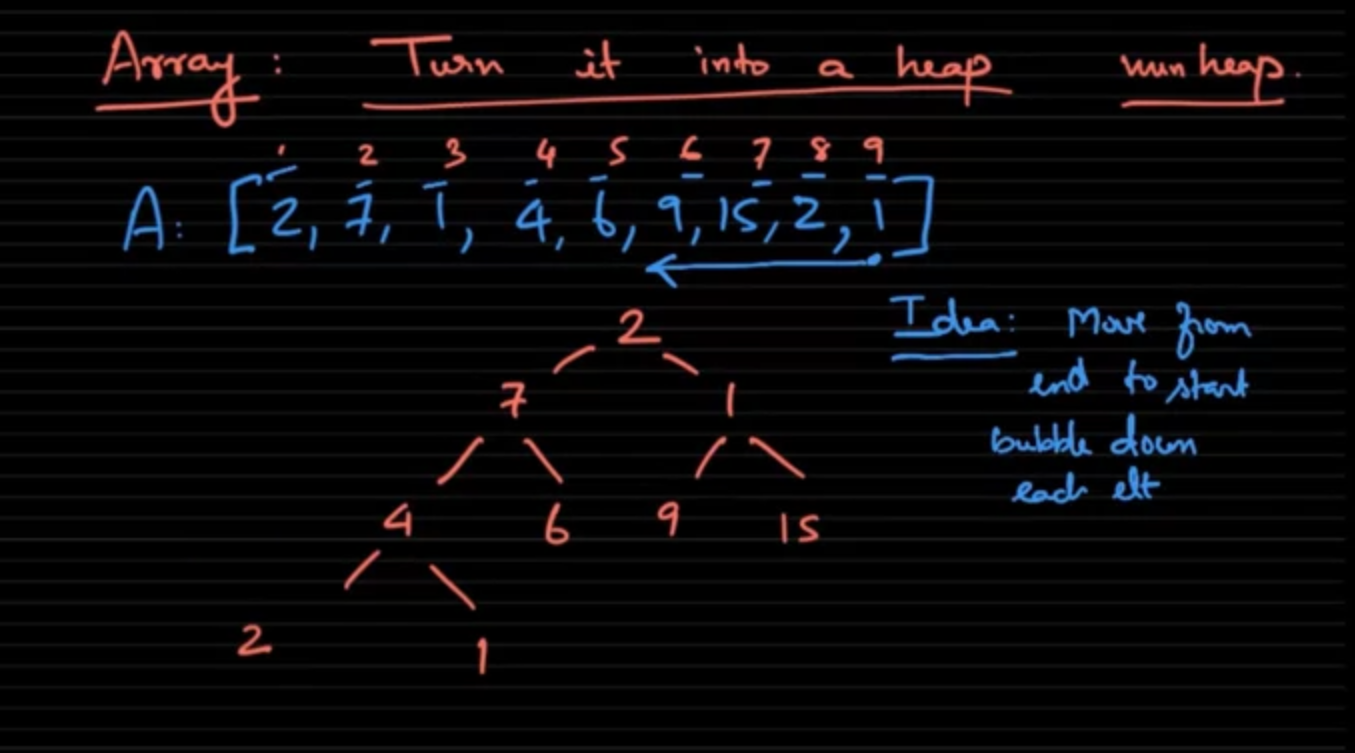 Array: Turn it into a heap min heap.
1 2 3 4 5 6 7 8 9
A: [2, 7, 1, 4, 6, 9, 15, 2, 1]
2
Idea: Move from
end to start
bubble down
each elt
7 1
4 6 9 15
2 1